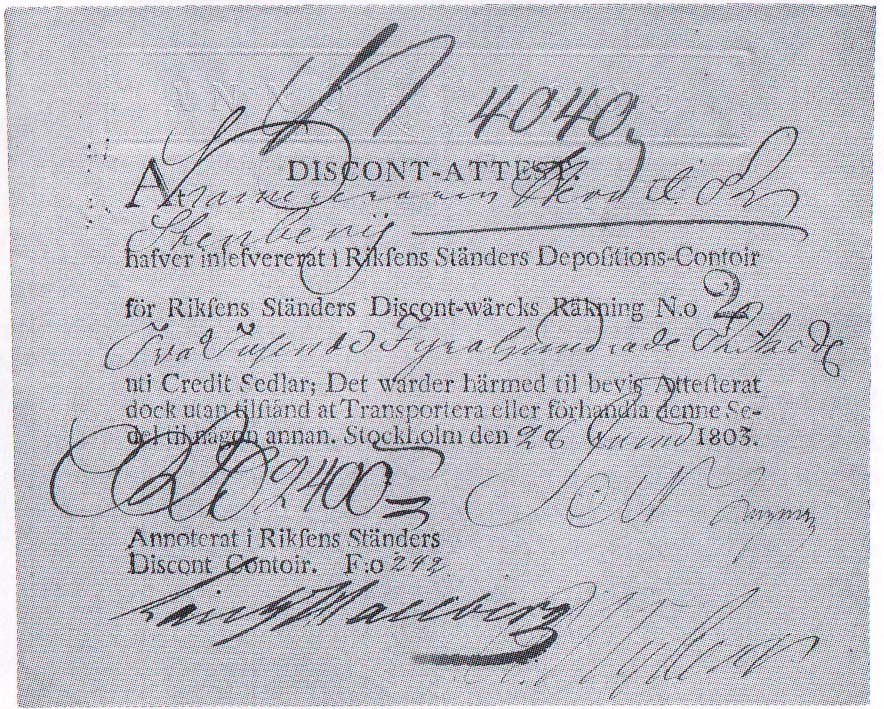 ANNO 3
N 4040,
DISCONT-ATTEST.
At
Stenberg
hafver inlefvererat i Rikſens Ständers Depoſitions-Contoir
för Rikſens Ständers Discont-wärcks Räkning N.o 2
Två Tusende Fyrahundrade
uti Credit Sedlar; Det warder härmed til bevis Atteſterat
dock utan tilſtånd at Transportera eller förhandla denne Se-
del til någon annan. Stockholm den 28 Juni 1803.
2400
Annoterat i Rikſens Ständers
Discont Contoir. F:o 242.
Wallberg